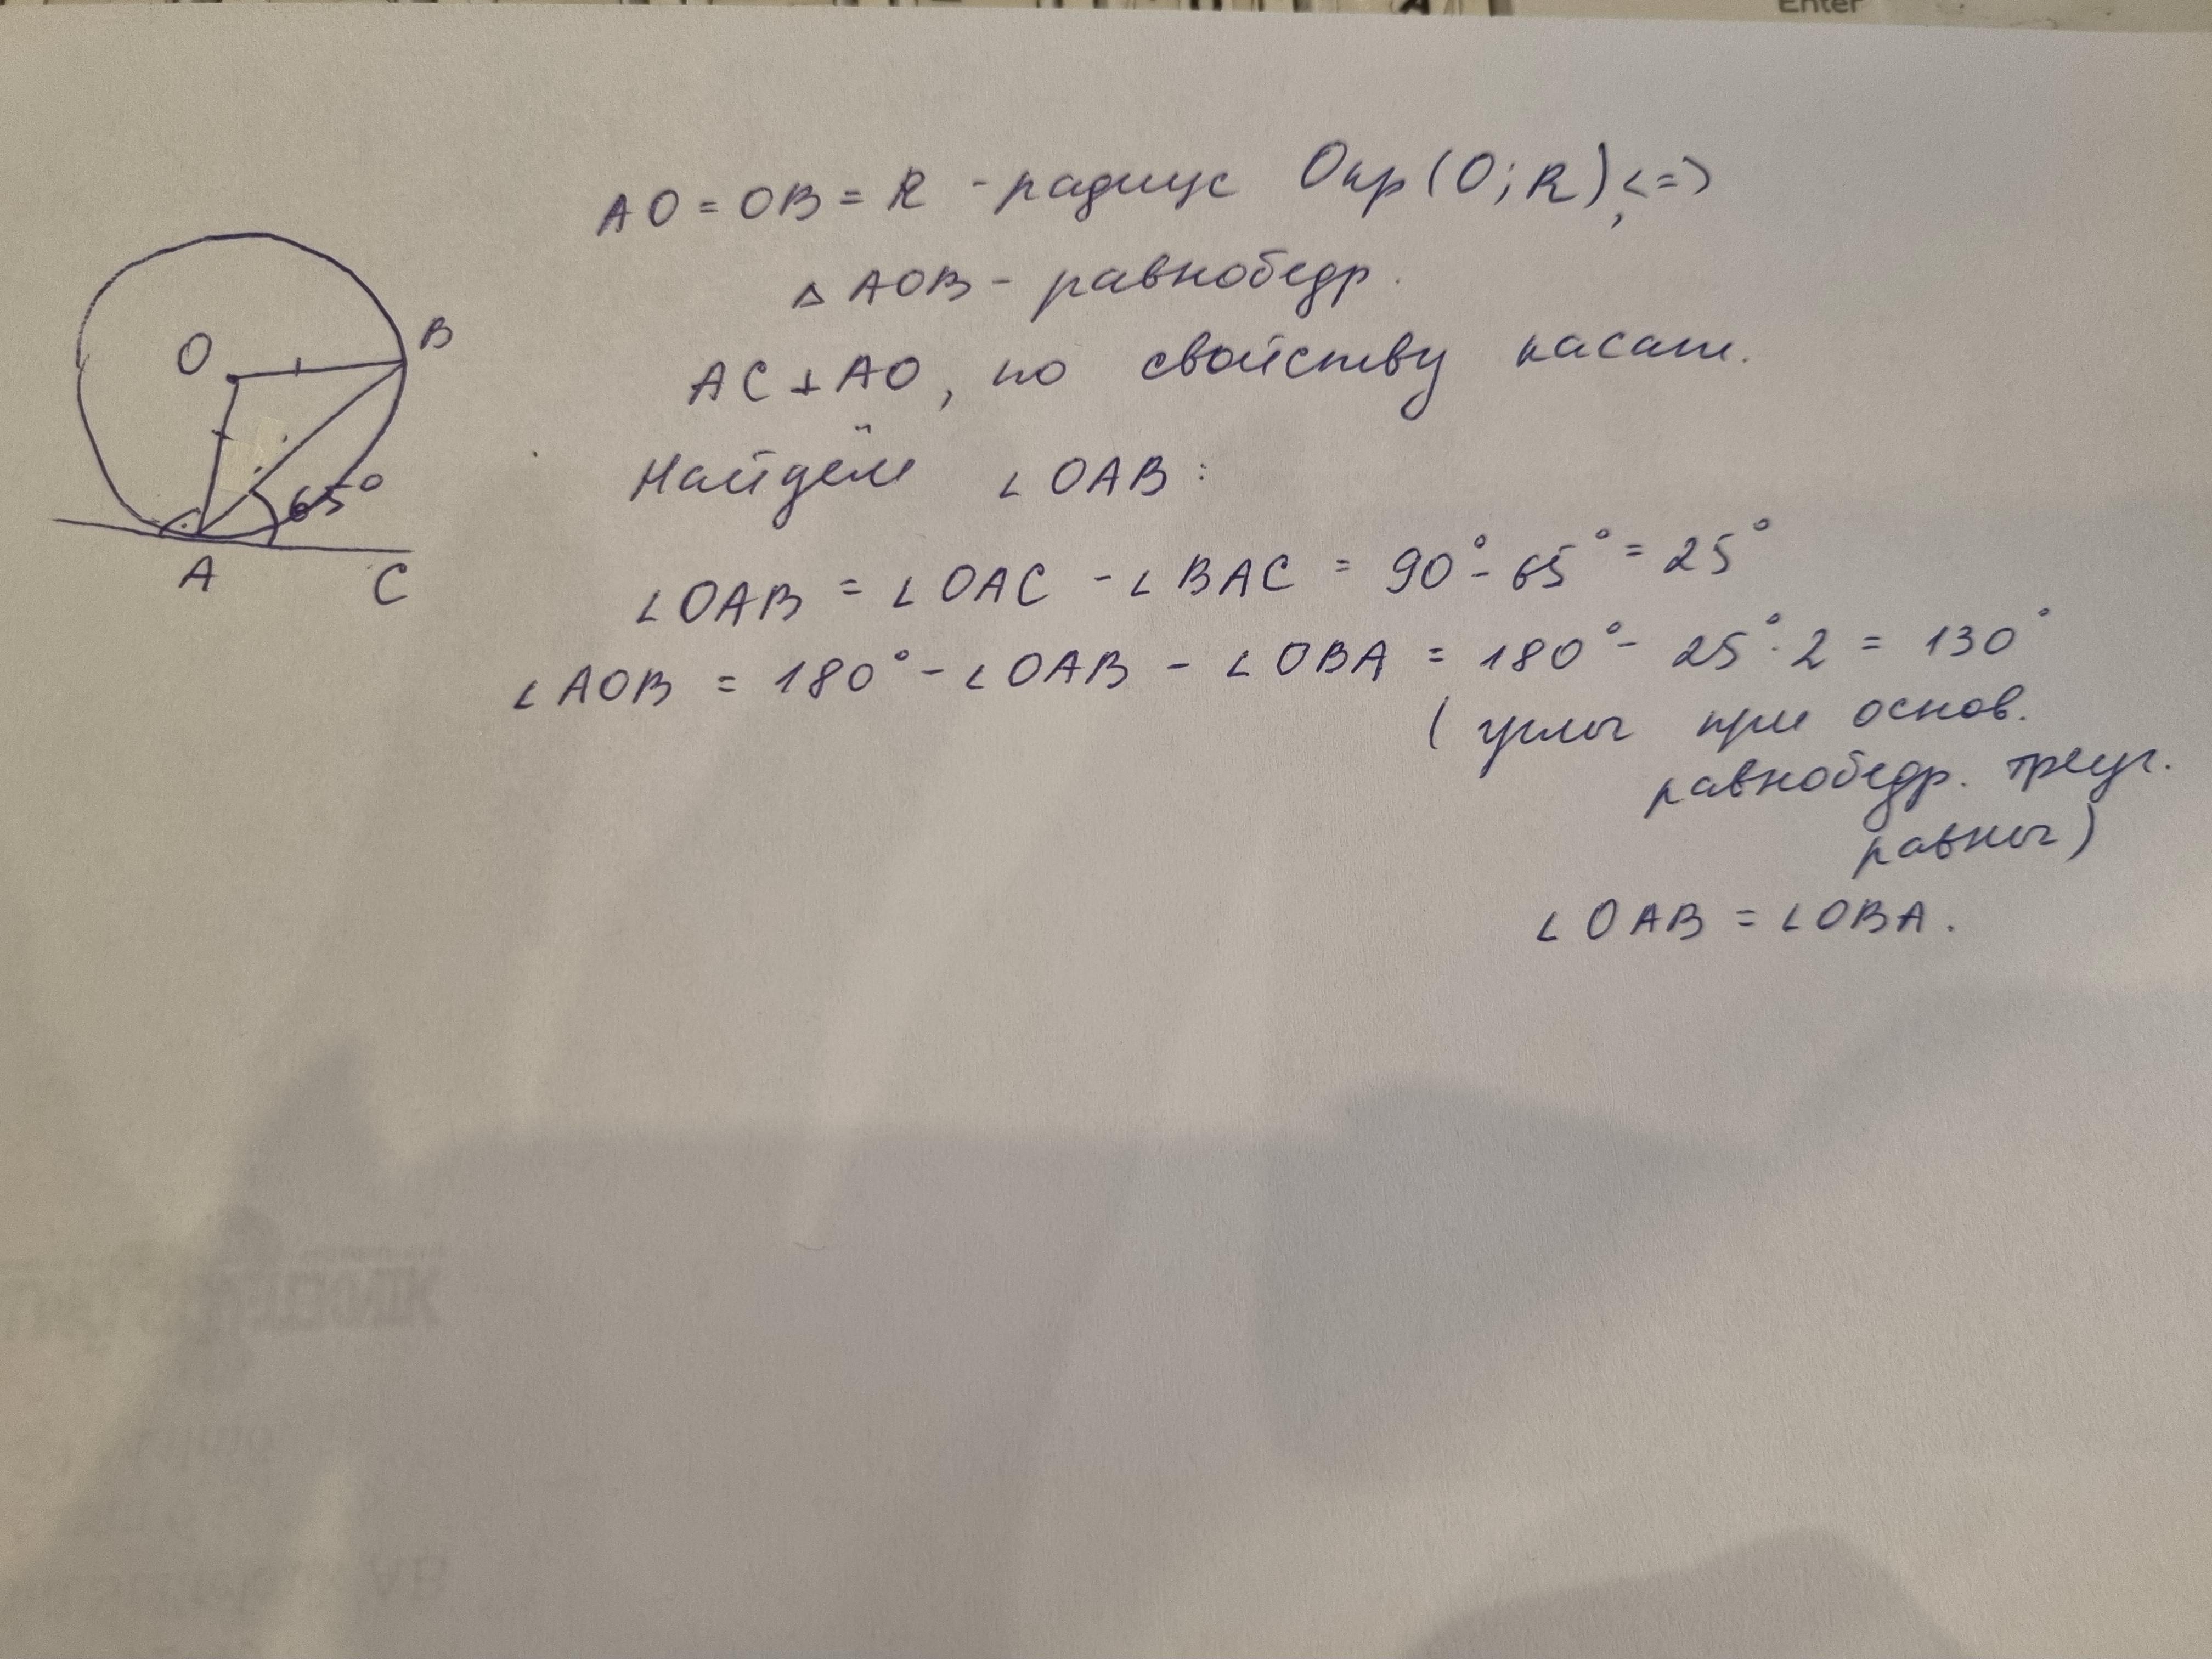 Enter
AO = OB = R - радиус Окр(O; R), <=>
△ AOB - равнобедр.
AC ⊥ AO, по свойству касат.
Найдём ∠OAB:
∠OAB = ∠OAC - ∠BAC = 90° - 65° = 25°
∠AOB = 180° - ∠OAB - ∠OBA = 180° - 25° · 2 = 130°
(углы при основ.
равнобедр. треуг.
равны)
∠OAB = ∠OBA.
O
B
65°
A
C